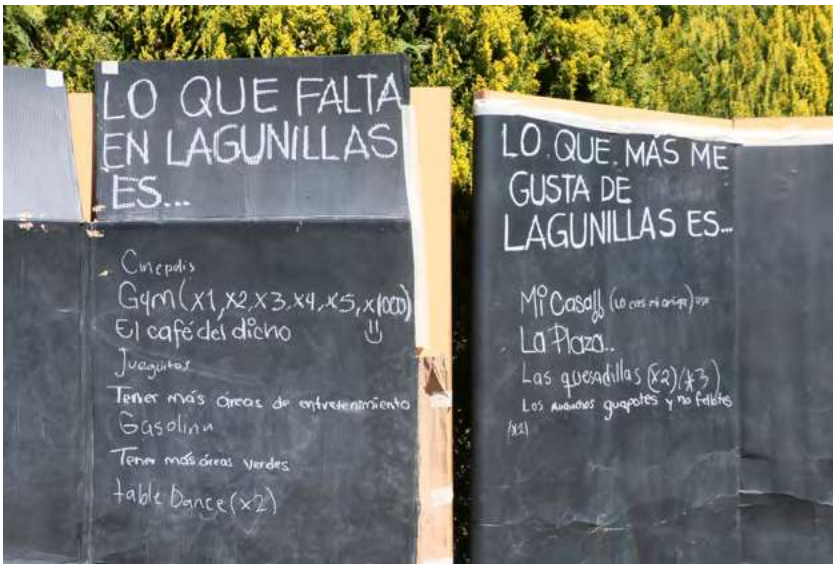 LO QUE FALTA
EN LAGUNILLAS
ES...
Cinepolis
Gym (x1, x2, x3, x4, x5, x1000)
El café del dicho
Jueguitos
Tener más áreas de entretenimiento
Gasolina
Tener más áreas verdes
table Dance (x2)
LO QUE MÁS ME
GUSTA DE
LAGUNILLAS ES...
Mi Casa (Lo eres mi amiga)
La Plaza..
Las quesadillas (x2) (x3)
Los muchachos guapotes y no fellotes
(x2)